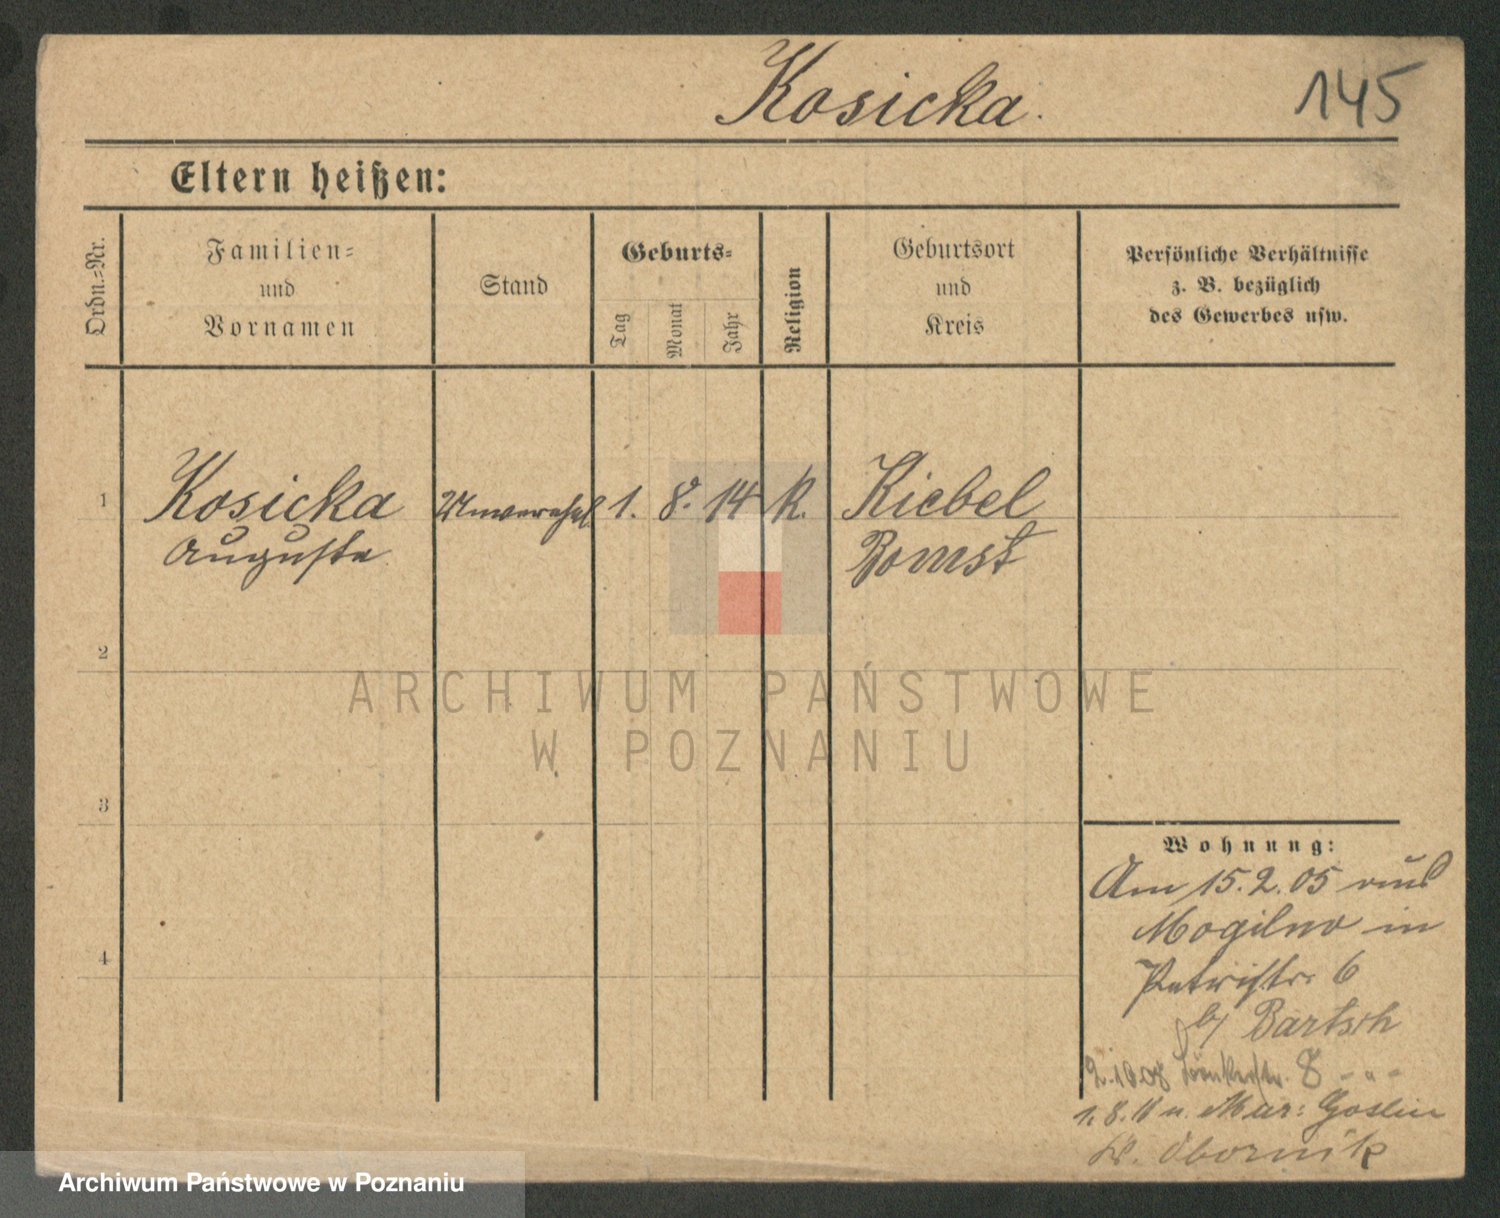 Kosicka.
145
Eltern heißen:
Ordn.=Nr.
Familien=
und
Vornamen
Stand
Geburts=
Tag
Monat
Jahr
Religion
Geburtsort
und
Kreis
Persönliche Verhältnisse
z. B. bezüglich
des Gewerbes usw.
1 Kosicka 1. 8. 14 k. Kiebel
Auguste Bomst
2
3
4
ARCHIWUM PAŃSTWOWE
W POZNANIU
Wohnung:
Am 15.2.05 aus
Mogilno in
Patristr. 6
b/ Bartsch
2.10.08 8 - " -
1.8.11 n. Mur: Goslin
Kr. Obornik
Archiwum Państwowe w Poznaniu